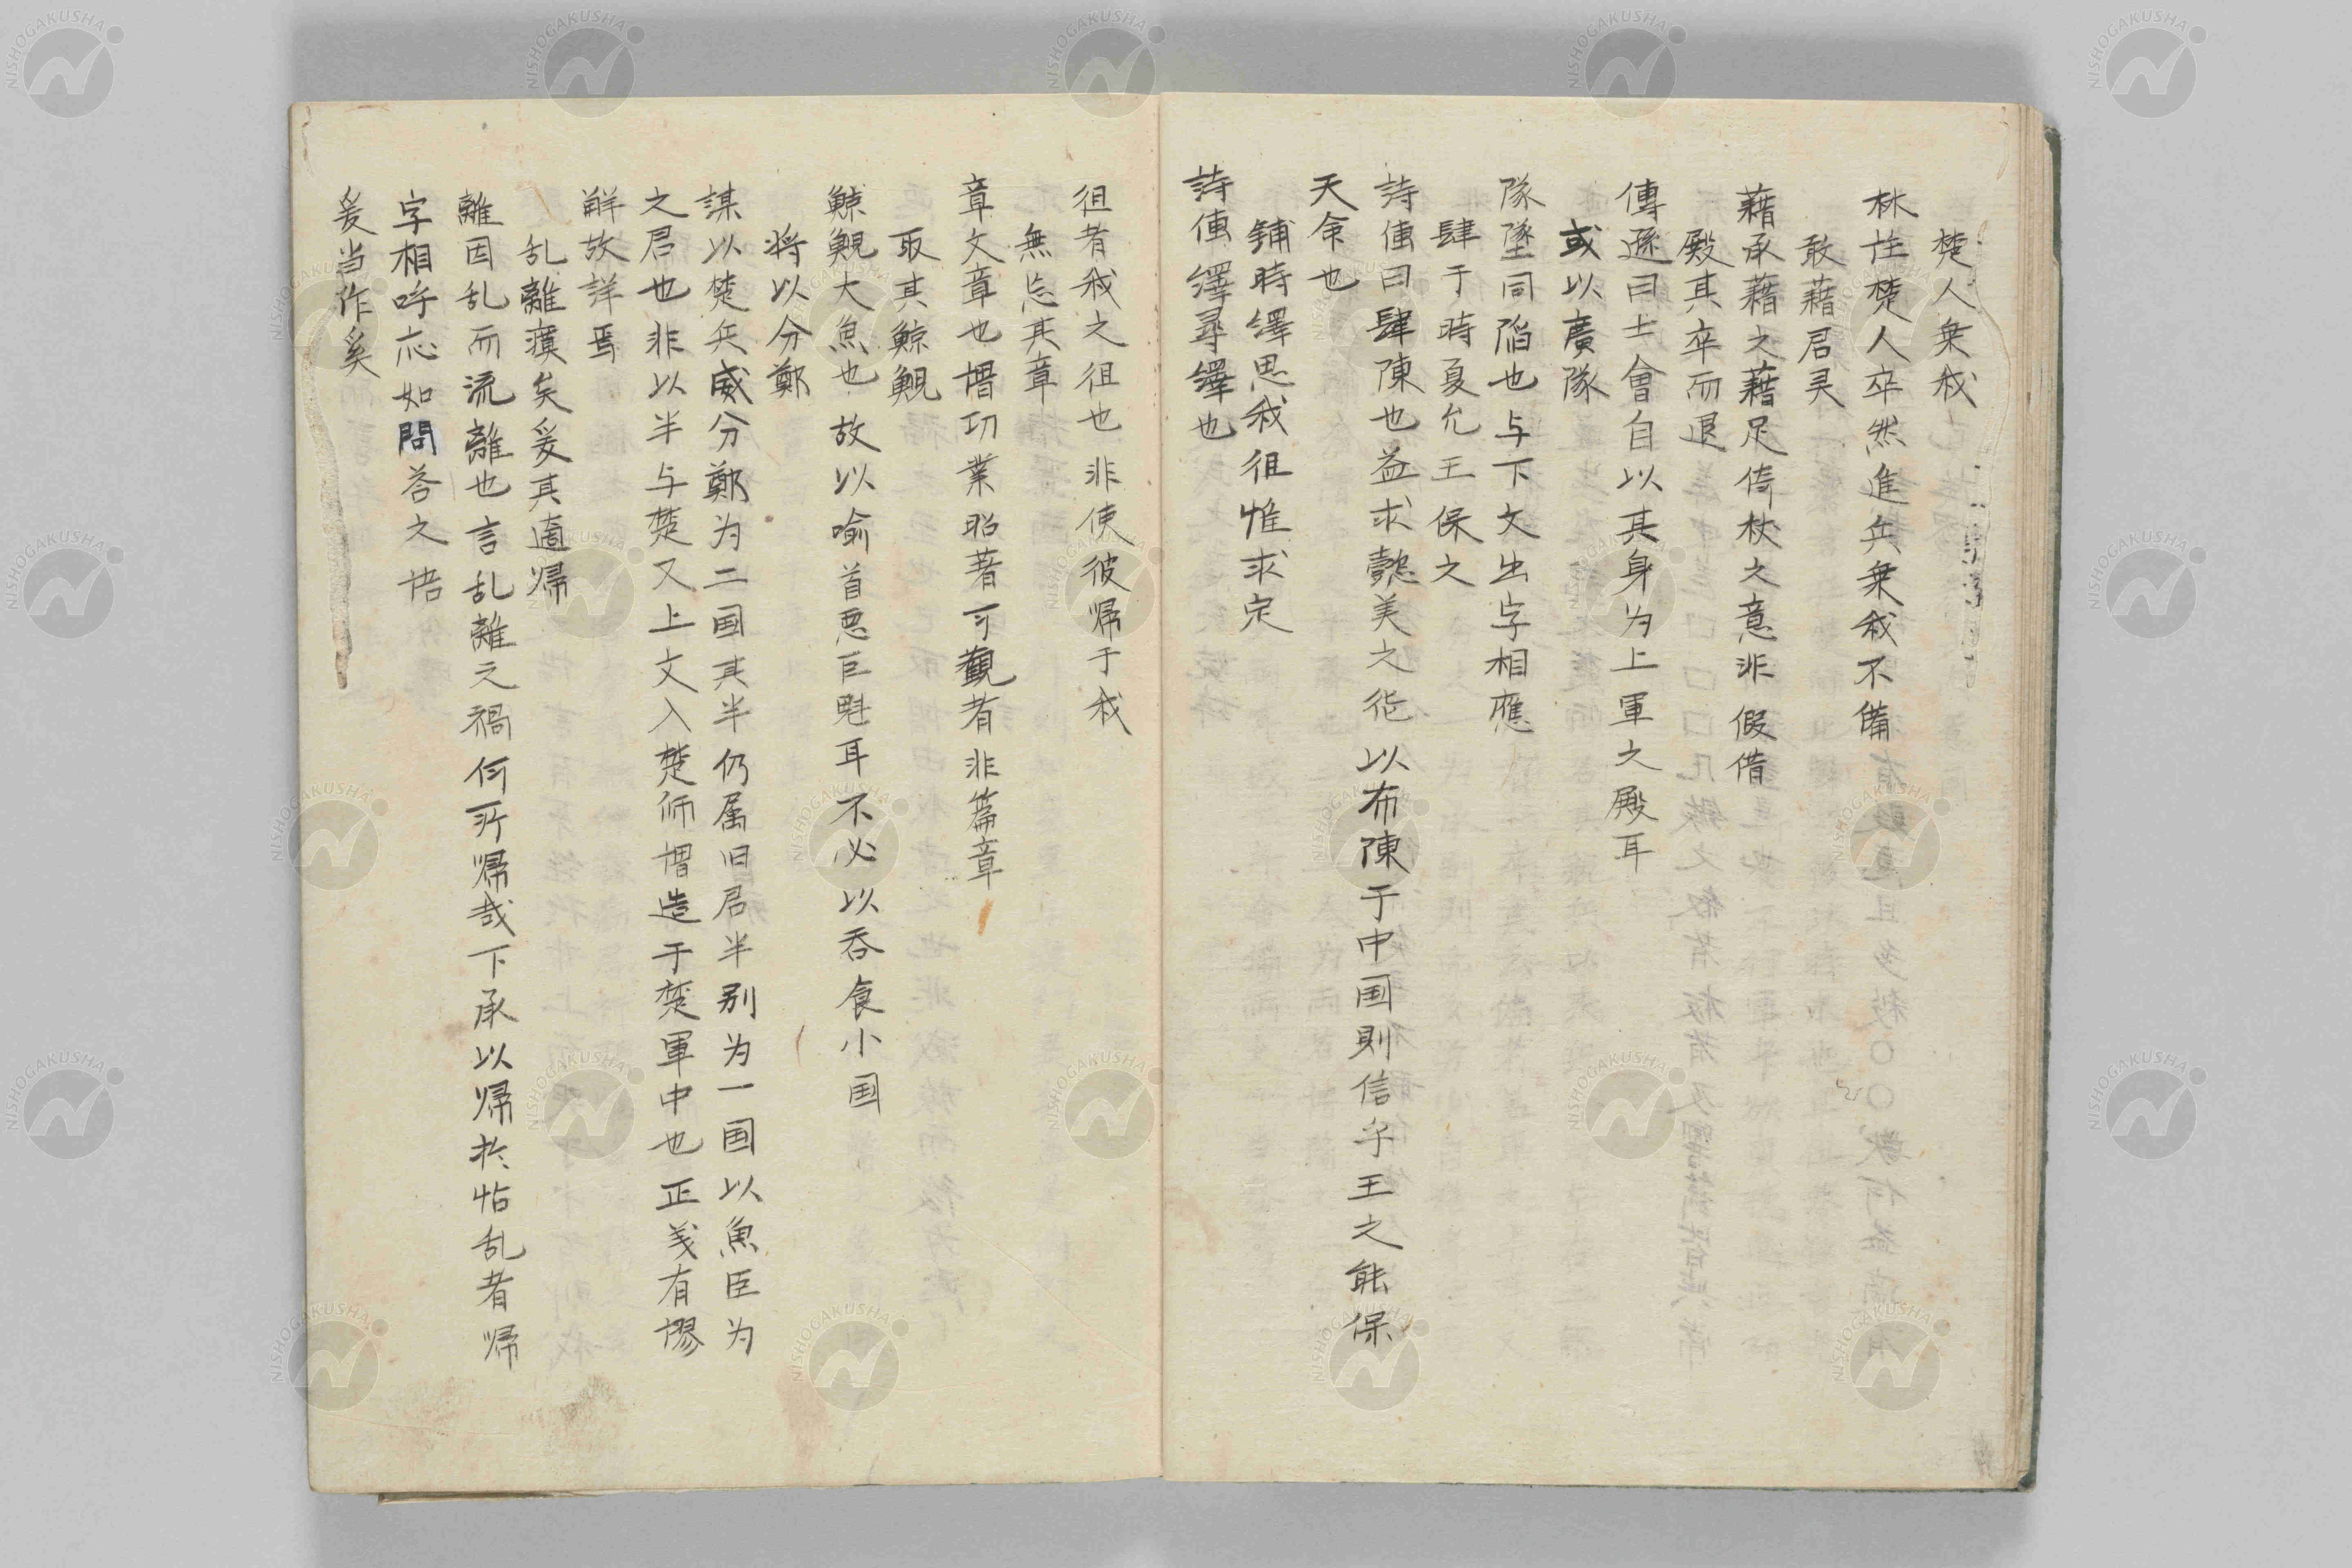 楚人乗我
林注楚人卒然進兵乗我不備
敢藉君灵
藉承藉之藉足倚杖之意非假借
殿其卒而退
傳遜曰士會自以其身为上軍之殿耳
或以廣隊
隊墜同陷也与下文出字相應
肆于時夏允王保之
詩傳曰肆陳也益求懿美之德以布陳于中国則信乎王之能保
天命也
鋪時繹思我徂惟求定
詩傳繹尋繹也
徂者我之徂也非使彼帰于我
無忘其章
章文章也謂功業昭著可觀者非篇章
取其鯨鯢
鯨鯢大魚也故以喻首悪巨魁耳不必以吞食小国
将以分鄭
謀以楚兵威分鄭为二国其半仍属旧君半别为一国以魚臣为
之君也非以半与楚又上文入楚師謂造于楚軍中也正義有謬
解故詳焉
乱離瘼矣爰其適帰
離因乱而流離也言乱離之禍何所帰哉下承以帰於怙乱者帰
字相呼応如問答之语
爰当作奚
NISHOGAKUSHA